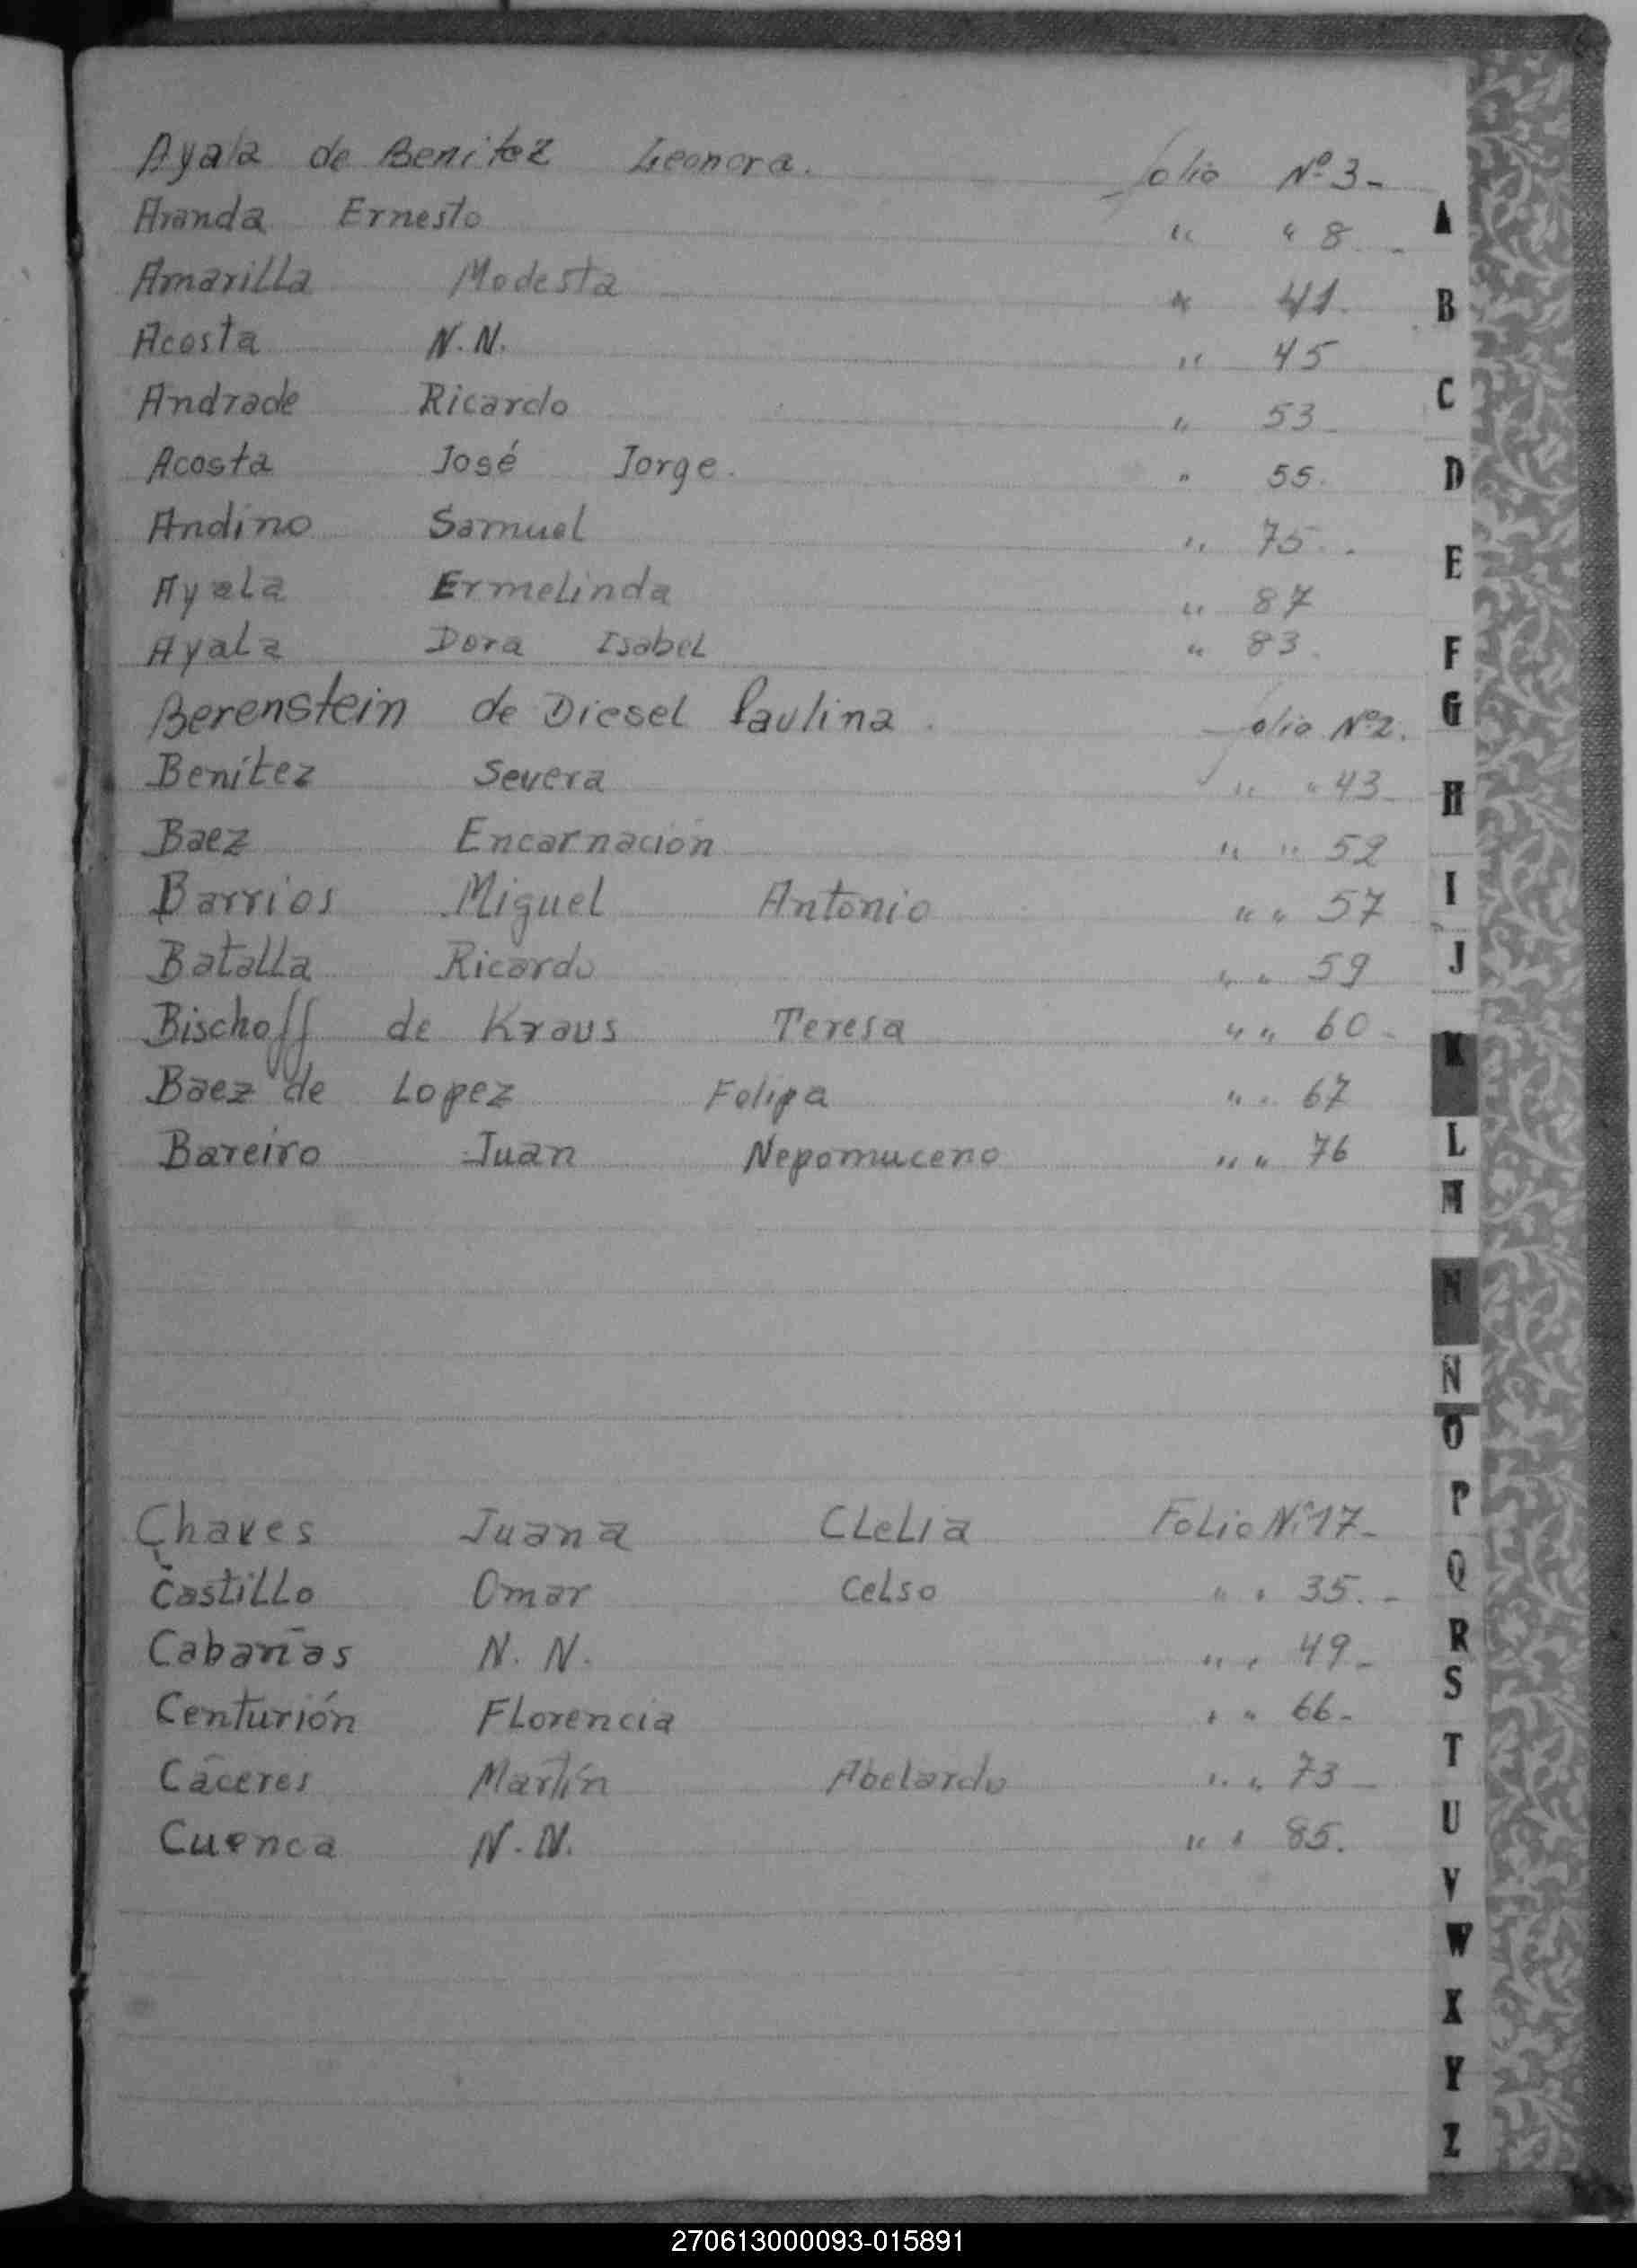 Ayala de Benitez Leonora. folio Nº 3-
Aranda Ernesto " " 8.
Amarilla Modesta " 41.
Acosta N.N. " 45
Andrade Ricardo " 53
Acosta José Jorge. " 55.
Andino Samuel " 75.
Ayala Ermelinda " 87
Ayala Dora Isabel " 83.
Berenstein de Diesel Paulina. folio Nº 2.
Benítez Severa " " 43
Baez Encarnación " " 52
Barrios Miguel Antonio " " 57
Batalla Ricardo " " 59
Bischoff de Kraus Teresa " " 60-
Baez de Lopez Felipa " " 67
Bareiro Juan Nepomuceno " " 76
Chaves Juana CLeLia FoLio Nº 17-
Castillo Omar Celso " " 35.-
Cabañas N. N. " " 49-
Centurión Florencia " " 66-
Cáceres Martín Abelardo " " 73-
Cuenca N.N. " " 85.
A
B
C
D
E
F
G
H
I
J
K
L
M
N
N
O
P
Q
R
S
T
U
V
W
X
Y
Z
270613000093-015891